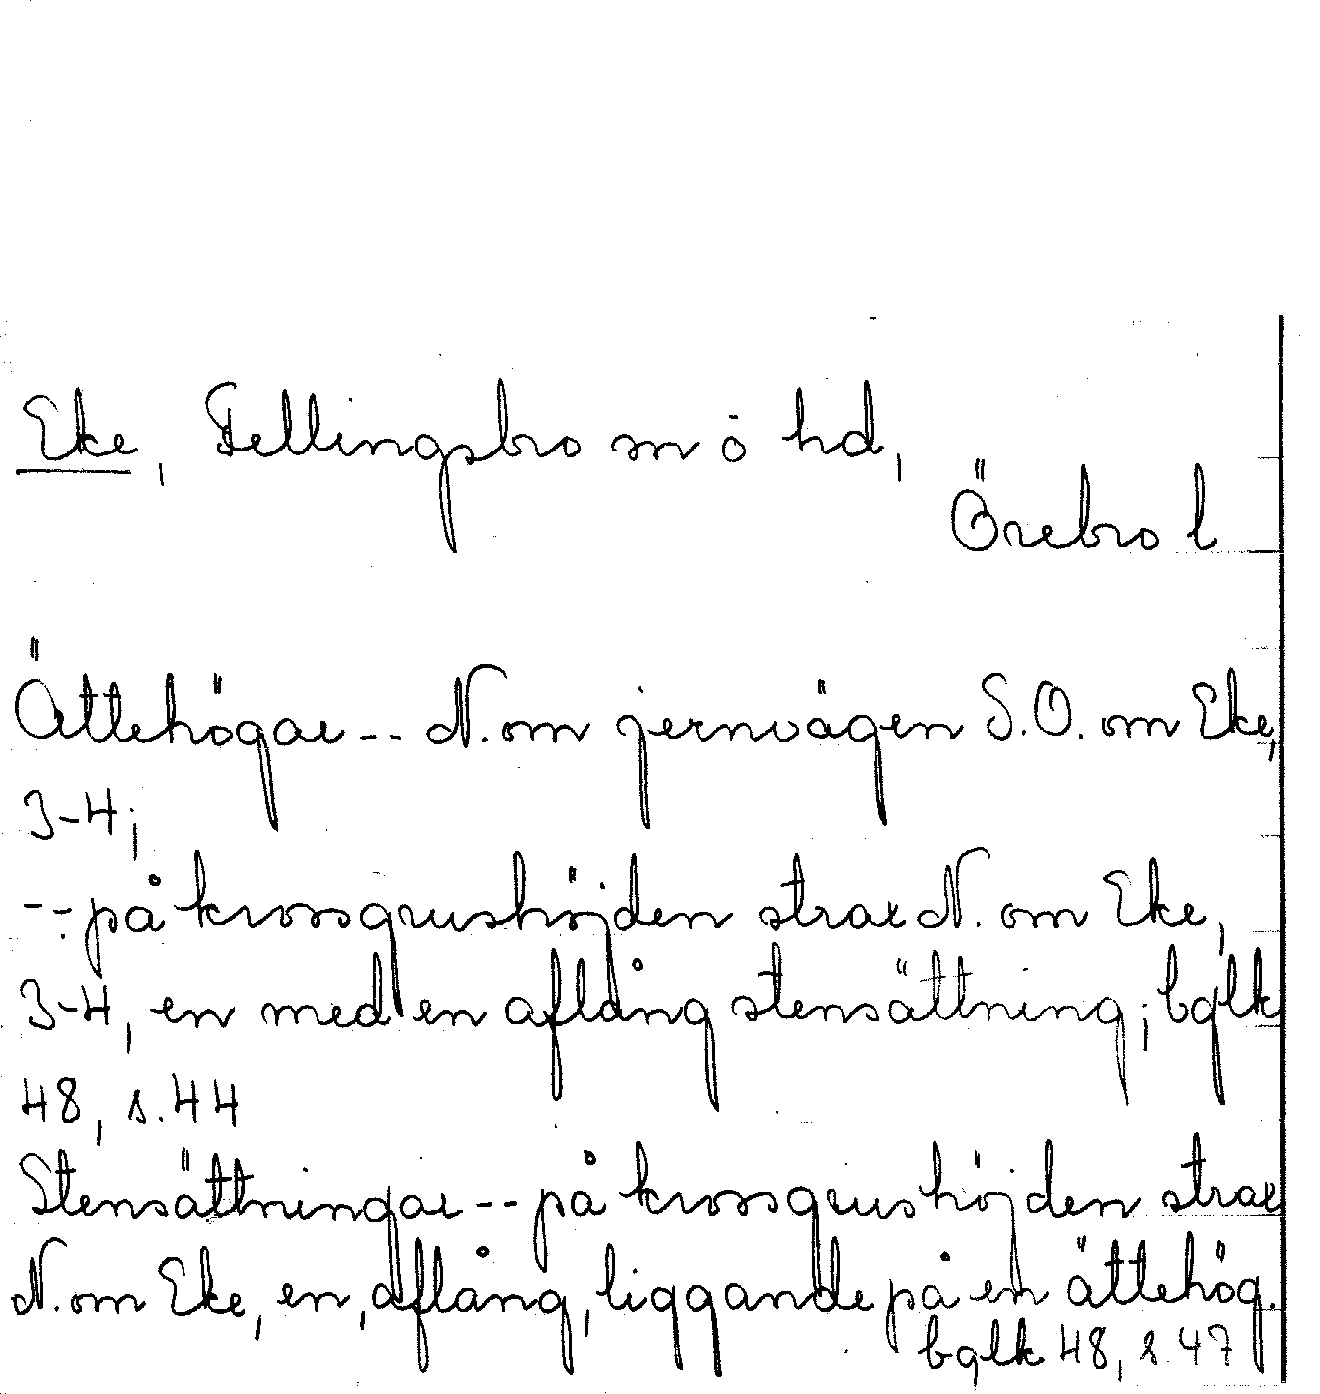 Eke, Fellingsbro sn ö hd,
Örebro l
Ättehögar -- N. om jernvägen S.O. om Eke,
3-4;
-- på krossgrushöjden strax N. om Eke,
3-4, en med en aflång stensättning; bglk
48, s. 44
Stensättningar -- på krossgrushöjden strax
N. om Eke, en, aflång, liggande på en ättehög.
bglk 48, s. 47